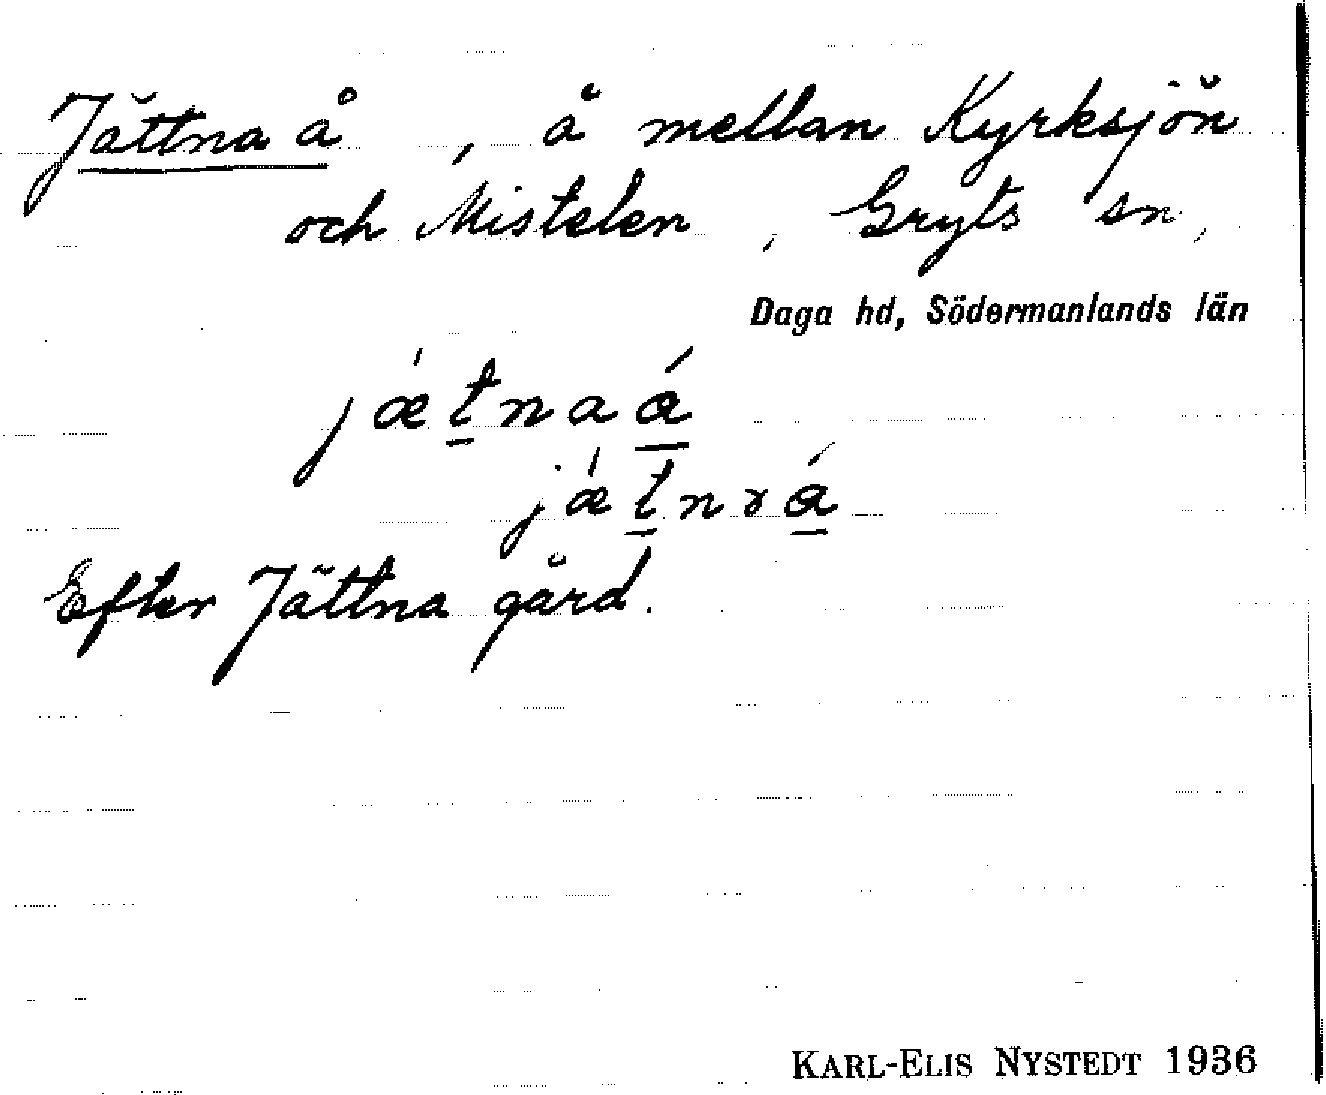 Jättna å, å mellan Kyrksjön
och Mistelen, Gryts sn,
Daga hd, Södermanlands län
jǽtnaá
jǽtnɤá
Efter Jättna gård.
KARL-ELIS NYSTEDT 1936